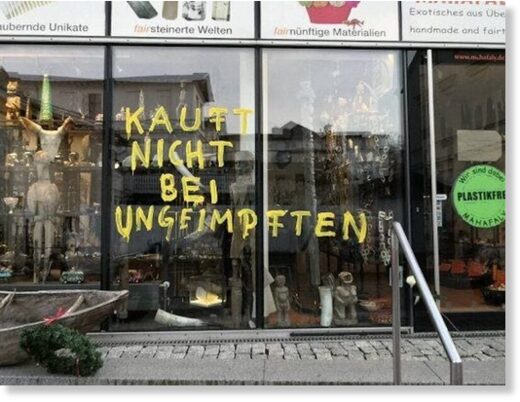 aubernde Unikate
fairsteinerte Welten
fairnünftige Materialien
Exotisches aus Übe
handmade and fairt
www.mahafaly.de
KAUFT
NICHT
BEI
UNGEIMPFTEN
Wir sind dabei
PLASTIKFRE
MAHAFALY